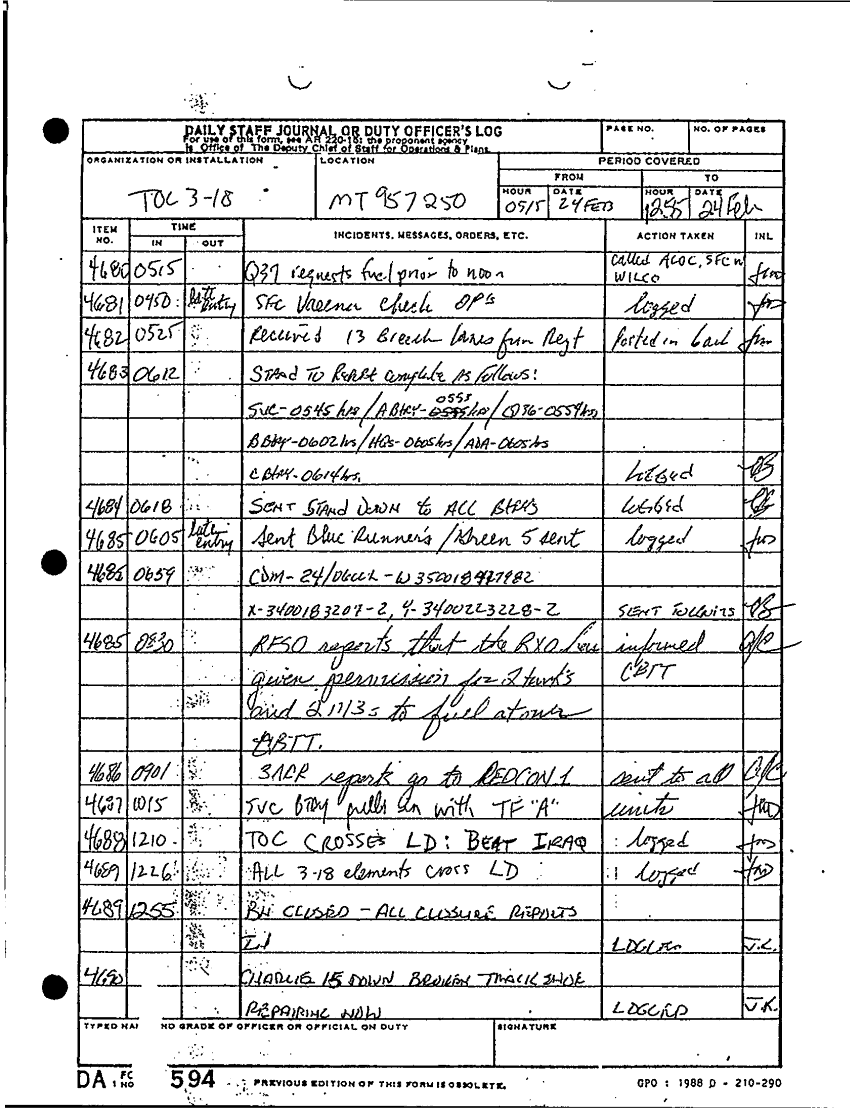 DAILY STAFF JOURNAL OR DUTY OFFICER'S LOG
For use of this form, see AR 220-15; the proponent agency
is Office of The Deputy Chief of Staff for Operations & Plans.
PAGE NO.
NO. OF PAGES
ORGANIZATION OR INSTALLATION
TOC 3-18
LOCATION
MT 957250
PERIOD COVERED
FROM
TO
HOUR DATE HOUR DATE
0515 24 FEB 1255 24 Feb
ITEM NO. TIME IN OUT INCIDENTS, MESSAGES, ORDERS, ETC. ACTION TAKEN INL
4680 0515 Q37 requests fuel prior to noon called ALOC, SFC
WILCO
4681 0450 late entry SFC check OP's logged
4682 0525 Received 13 Breach lanes from Regt Posted in
4683 0612 STAND TO REPORT complete AS Follows:
0555
SVC-0545 hrs/ABtry-0555hrs/Q36-0559hrs
B Btry-0602hrs/HQs-0605hrs/ADA-0605hrs
C Btry-0614hrs. logged
4684 0618 SENT STAND DOWN to ALL Btrys logged
4685 0605 late entry Sent Blue Runner's / Green 5 sent logged
4685 0659 CDM-24/
X-3400183207-2, Y-3400223228-2 SENT TO UNITS
4685 0830 RFSO reports that the RXO has informed
given permission for 2 tanks CBTT
and 2 113s to fuel at our
ABTT.
4686 0901 3ACR reports go to REDCON 1 sent to all
4687 1015 SVC BTRY pulls in with TF "A" units
4688 1210 TOC CROSSES LD: BEAT IRAQ logged
4689 1226 ALL 3-18 elements cross LD logged
4689 1255 BN CLOSED - ALL CLOSURE REPORTS
In LOGGED J.K.
4690 CHARLIE 15 DOWN BROKEN TRACK SHOE
REPAIRING NOW LOGGED J.K.
TYPED NAME AND GRADE OF OFFICER OR OFFICIAL ON DUTY
SIGNATURE
DA FORM 1 NO 594
PREVIOUS EDITION OF THIS FORM IS OBSOLETE.
GPO : 1988 O - 210-290